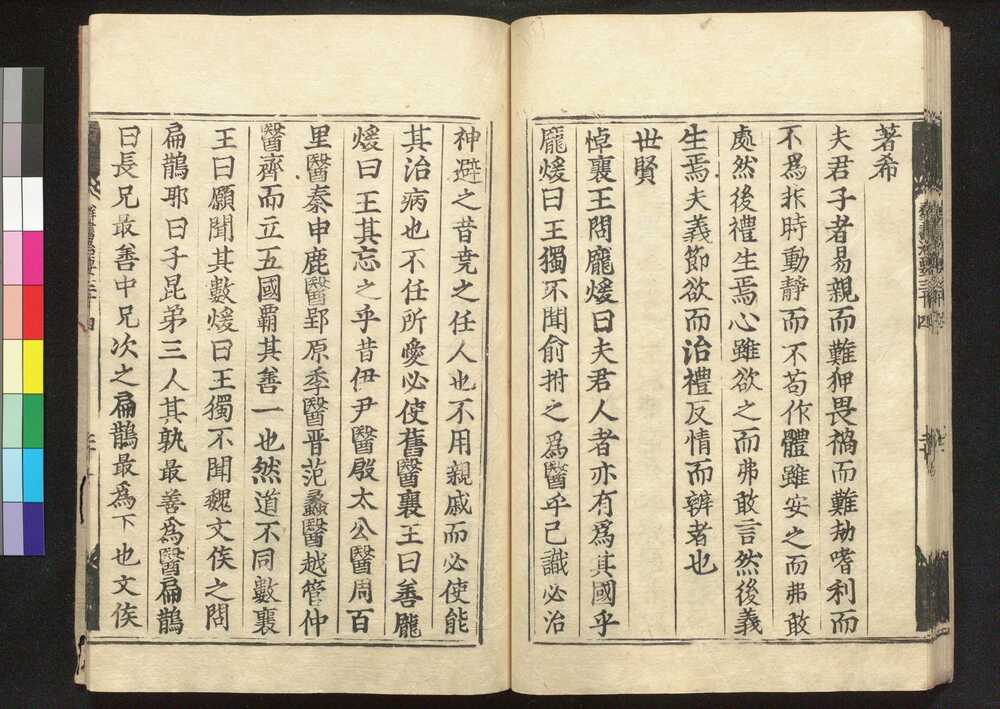 著希
夫君子者易親而難狎畏禍而難劫嗜利而
不爲非時動靜而不苟作體雖安之而弗敢
處然後禮生焉心雖欲之而弗敢言然後義
生焉夫義節欲而治禮反情而辨者也
世賢
悼襄王問龐煖曰夫君人者亦有爲其國乎
龐煖曰王獨不聞俞拊之爲醫乎已識必治
神避之昔堯之任人也不用親戚而必使能
其治病也不任所愛必使舊醫襄王曰善龐
煖曰王其忘之乎昔伊尹醫殷太公醫周百
里醫秦申鹿醫郢原季醫晉范蠡醫越管仲
醫齊而立五國霸其善一也然道不同數襄
王曰願聞其數煖曰王獨不聞魏文侯之問
扁鵲耶曰子昆弟三人其孰最善爲醫扁鵲
曰長兄最善中兄次之扁鵲最爲下也文侯